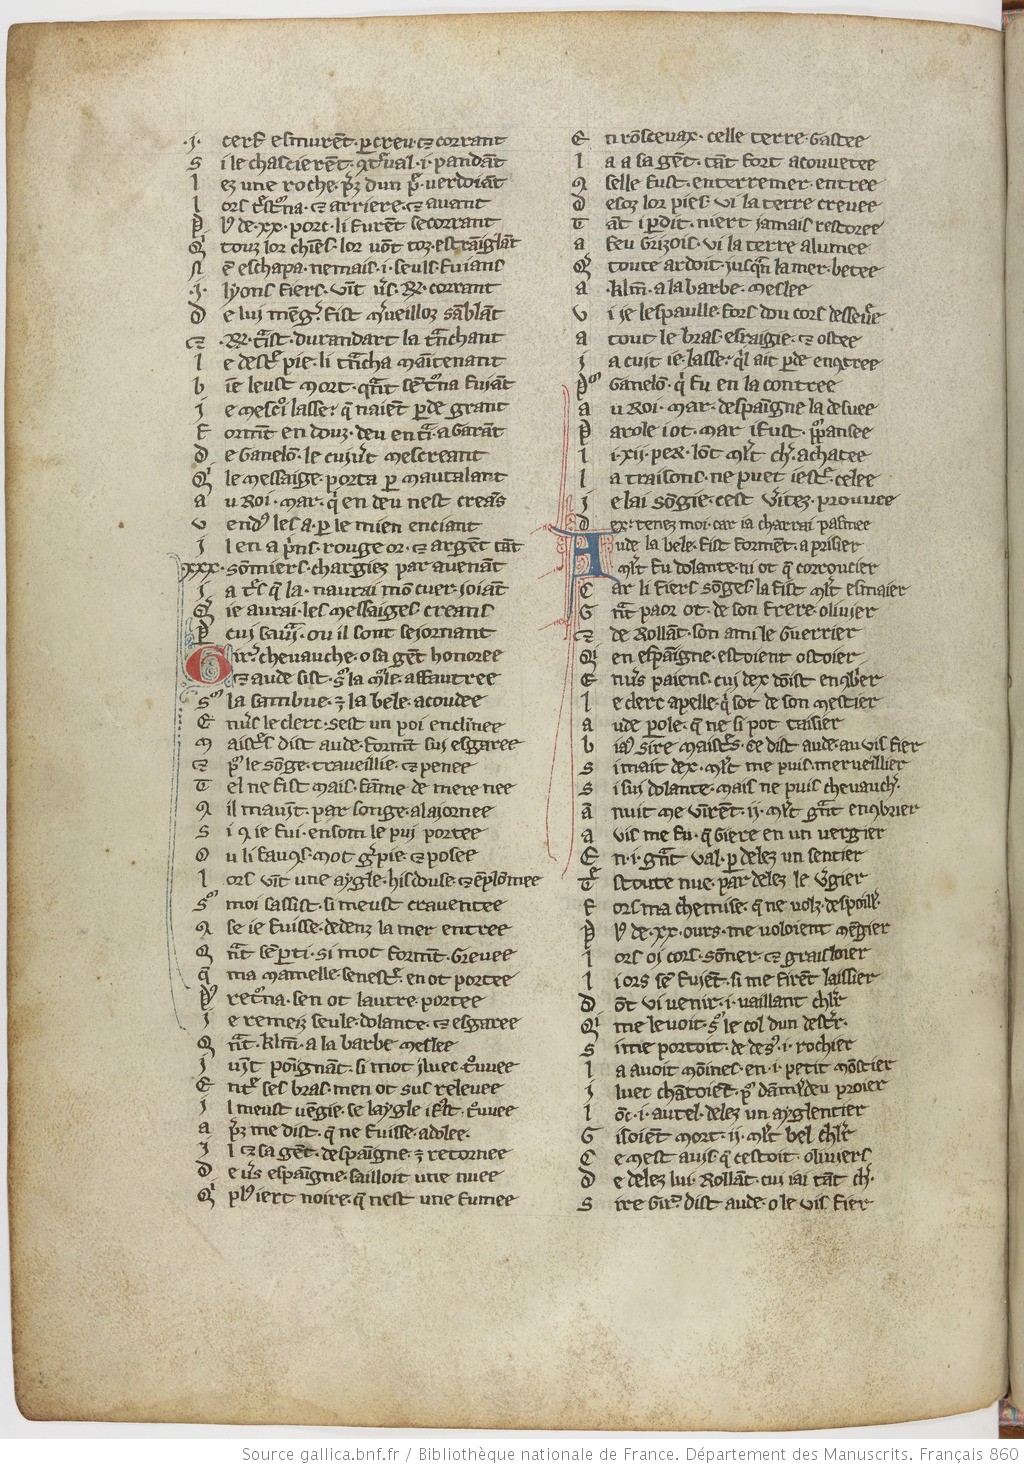 .J. cerf esmurẽt. ꝑ creu. ⁊ corrant
s i le chascierẽt. ꝯtͤual. i. pandãt
l ez une roche. p̃z dun p̃. uerdoiãt
l ors tͤstͦna. ⁊ arriere. ⁊ auant
P lꝰ de .xx. porc. li furẽt secorrant
Q touz lor chiẽs. lor uõt toz. estraiglãt
N ẽ eschapa. nemais .i. seuls fuians
.J. lyons fiers. uĩt ũs. R. corrant
D e lui mẽgͥ. fist mͥueilloz sãblãt
⁊ .R. tͣist. durandart la trãchant
l e destͤ pie. li trãcha maĩtenant
b iẽ leust mort. qͣnt sẽ tͦna fuiãt
J e mescͥoi lasse. q̃ naiẽt ꝑde grant
F ormẽt en douz. deu entͥ. a garãt
D e Ganelõ. le cuiũt mescreant
Qͥ le messaige. porta ꝑ mautalant
a u Roi. mar. qͥ en deu nest creãs
v endꝰ les a. ꝑ le mien enciant
J l en a pͥns. rouge or. ⁊ argẽt tãt
.xxx. sõmiers. chargiez par auenãt
J a tͤs q̃ la. naurai mõ cuer ioiãt
Q̃ ie aurai. les messaiges creans
P cui saurai. ou il sont seiornant
G irͬ. cheuauche. o sa gẽt honoree
⁊ aude sist. sͦ la mͥle affautree
Sͦ la sambue. ⁊ la bele. acoudee
E nũs le clerc. sest un poi enclinee
M aistͤs dist aude. formẽt sui esgaree
⁊ pͦ le sõge. traueillie. ⁊ penee
T el ne fist mais. fãme de mere nee
Q il mauĩt. par songe. alaiornee
S i ꝯ ie fui. ensom le pui portee
O u li fauꝯs. mot gͥpie. ⁊ posee
l ors uĩt une aygle. hisdouse. ⁊ ẽplomee
Sͦ moi sassist. si meust crauentee
Q se ie fuisse. dedenz la mer entree
Q nͣt sẽ parti. si mot formẽt. greuee
q̃ ma mamelle. senestͤ. en ot portee
P retͦna. sen ot lautre. portee
J e remeiz seule. dolante. ⁊ esgaree
Q nͣt. klm̃. a la barbe meslee
J uĩt poignant. si mot iluec tͦuuee
E ntͤ ses bras. men ot sus releuee
J l meust uẽgie. se laygle i fͥt. tͦuuee
a p̃z me dist. q̃ ne fuisse. adolee.
J l ⁊ sa gẽt. despaĩgne. ⁊ retornee
D e ũs espaĩgne. sailloit une nuee
Qͥ plꝰ iert noire. q̃ nest une fumee
E n rõsceuax. celle terre. Gastee
l a a sa gẽt. tãt fort acouuetee
Q selle fust. enterremer. entree
D esoz lor piez. ui la terre creuee
T ãt i ꝑdit. niert jamais restoree
a feu Grizois. ui la terre alumee
Q̃ toute ardoit. jusqͣn la mer. betee
a .klm̃. a la barbe. meslee
V i ie lespaulle. fors dou cors desseũe
a tout le bras. esraigie. ⁊ ostee
J a cuit ie. lasse. qͥl ait ꝑde enꝯtree
Pͦ Ganelõ. qͥ fu en la contree
a u Roi. mar. despaĩgne la desuee
P arole i ot. mar i fust. ꝑpansee
l i .xij. per. lõt mͥt chͥ. achatee
l a traisons. ne puet iestͤ. celee
J e lai sõgie. cest ũitez. prouuee
D ex. tenez moi. car ia charrai pasmee
A ude la bele. fist formẽt. a prisier
mͥt fu dolante. ni ot q̃ corroucier
C ar li fiers sõges. la fist mͥt esmaier
G nͣt paor ot. de son frere. oliuier
⁊ de Rollãt. son ami le guerrier
Qͥ en espaĩgne. estoient ostoier
E nũs paiens. cui dex dõist enꝯber
l e clerc apelle. qͥ sot de son mestier
a ude ꝑole. q̃ ne si pot taisier
b iaꝰ sire maistͤs. ce dist aude. au uis fier
S i mait dex. mͥt me puis merueillier
S i sui dolante. mais ne puis cheuauchͥ.
ã nuit me uirent. ij. mͥt gͣnt enꝯbrier
a uis me fu. q̃ giere en un uergier
E n .i. gͣnt ual. ꝑ delez un sentier
T stoute nue. par delez le ũgier
F ors ma chemise. q̃ ne uolz. despoillͥ.
P lꝰ de .xx. ours. me uoloient mẽgier
l ors oi cors. sõner. ⁊ graisloier
l i ors sẽ fuiẽt. si me firẽt laissier
D õt ui uenir. i. uaillant chl̃r
Qͥ me leuoit. sͦ le col dun destͥr.
S i me portoit. de desͦ. i. rochier
l a auoit moines. en .i. petit mõstier
J luec chãtoiẽt. pͦ dãmͥdeu proier
l õc .i. autel. delez un ayglentier
G isoiẽt mort .ij. mͥt bel chl̃r
C e mest auis q̃ cestoit. oliuiers
D e delez lui. Rollãt. cui iai tãt chͥ.
S ire Girͬ. dist aude. o le uis fier
Source gallica.bnf.fr / Bibliothèque nationale de France. Département des Manuscrits. Français 860